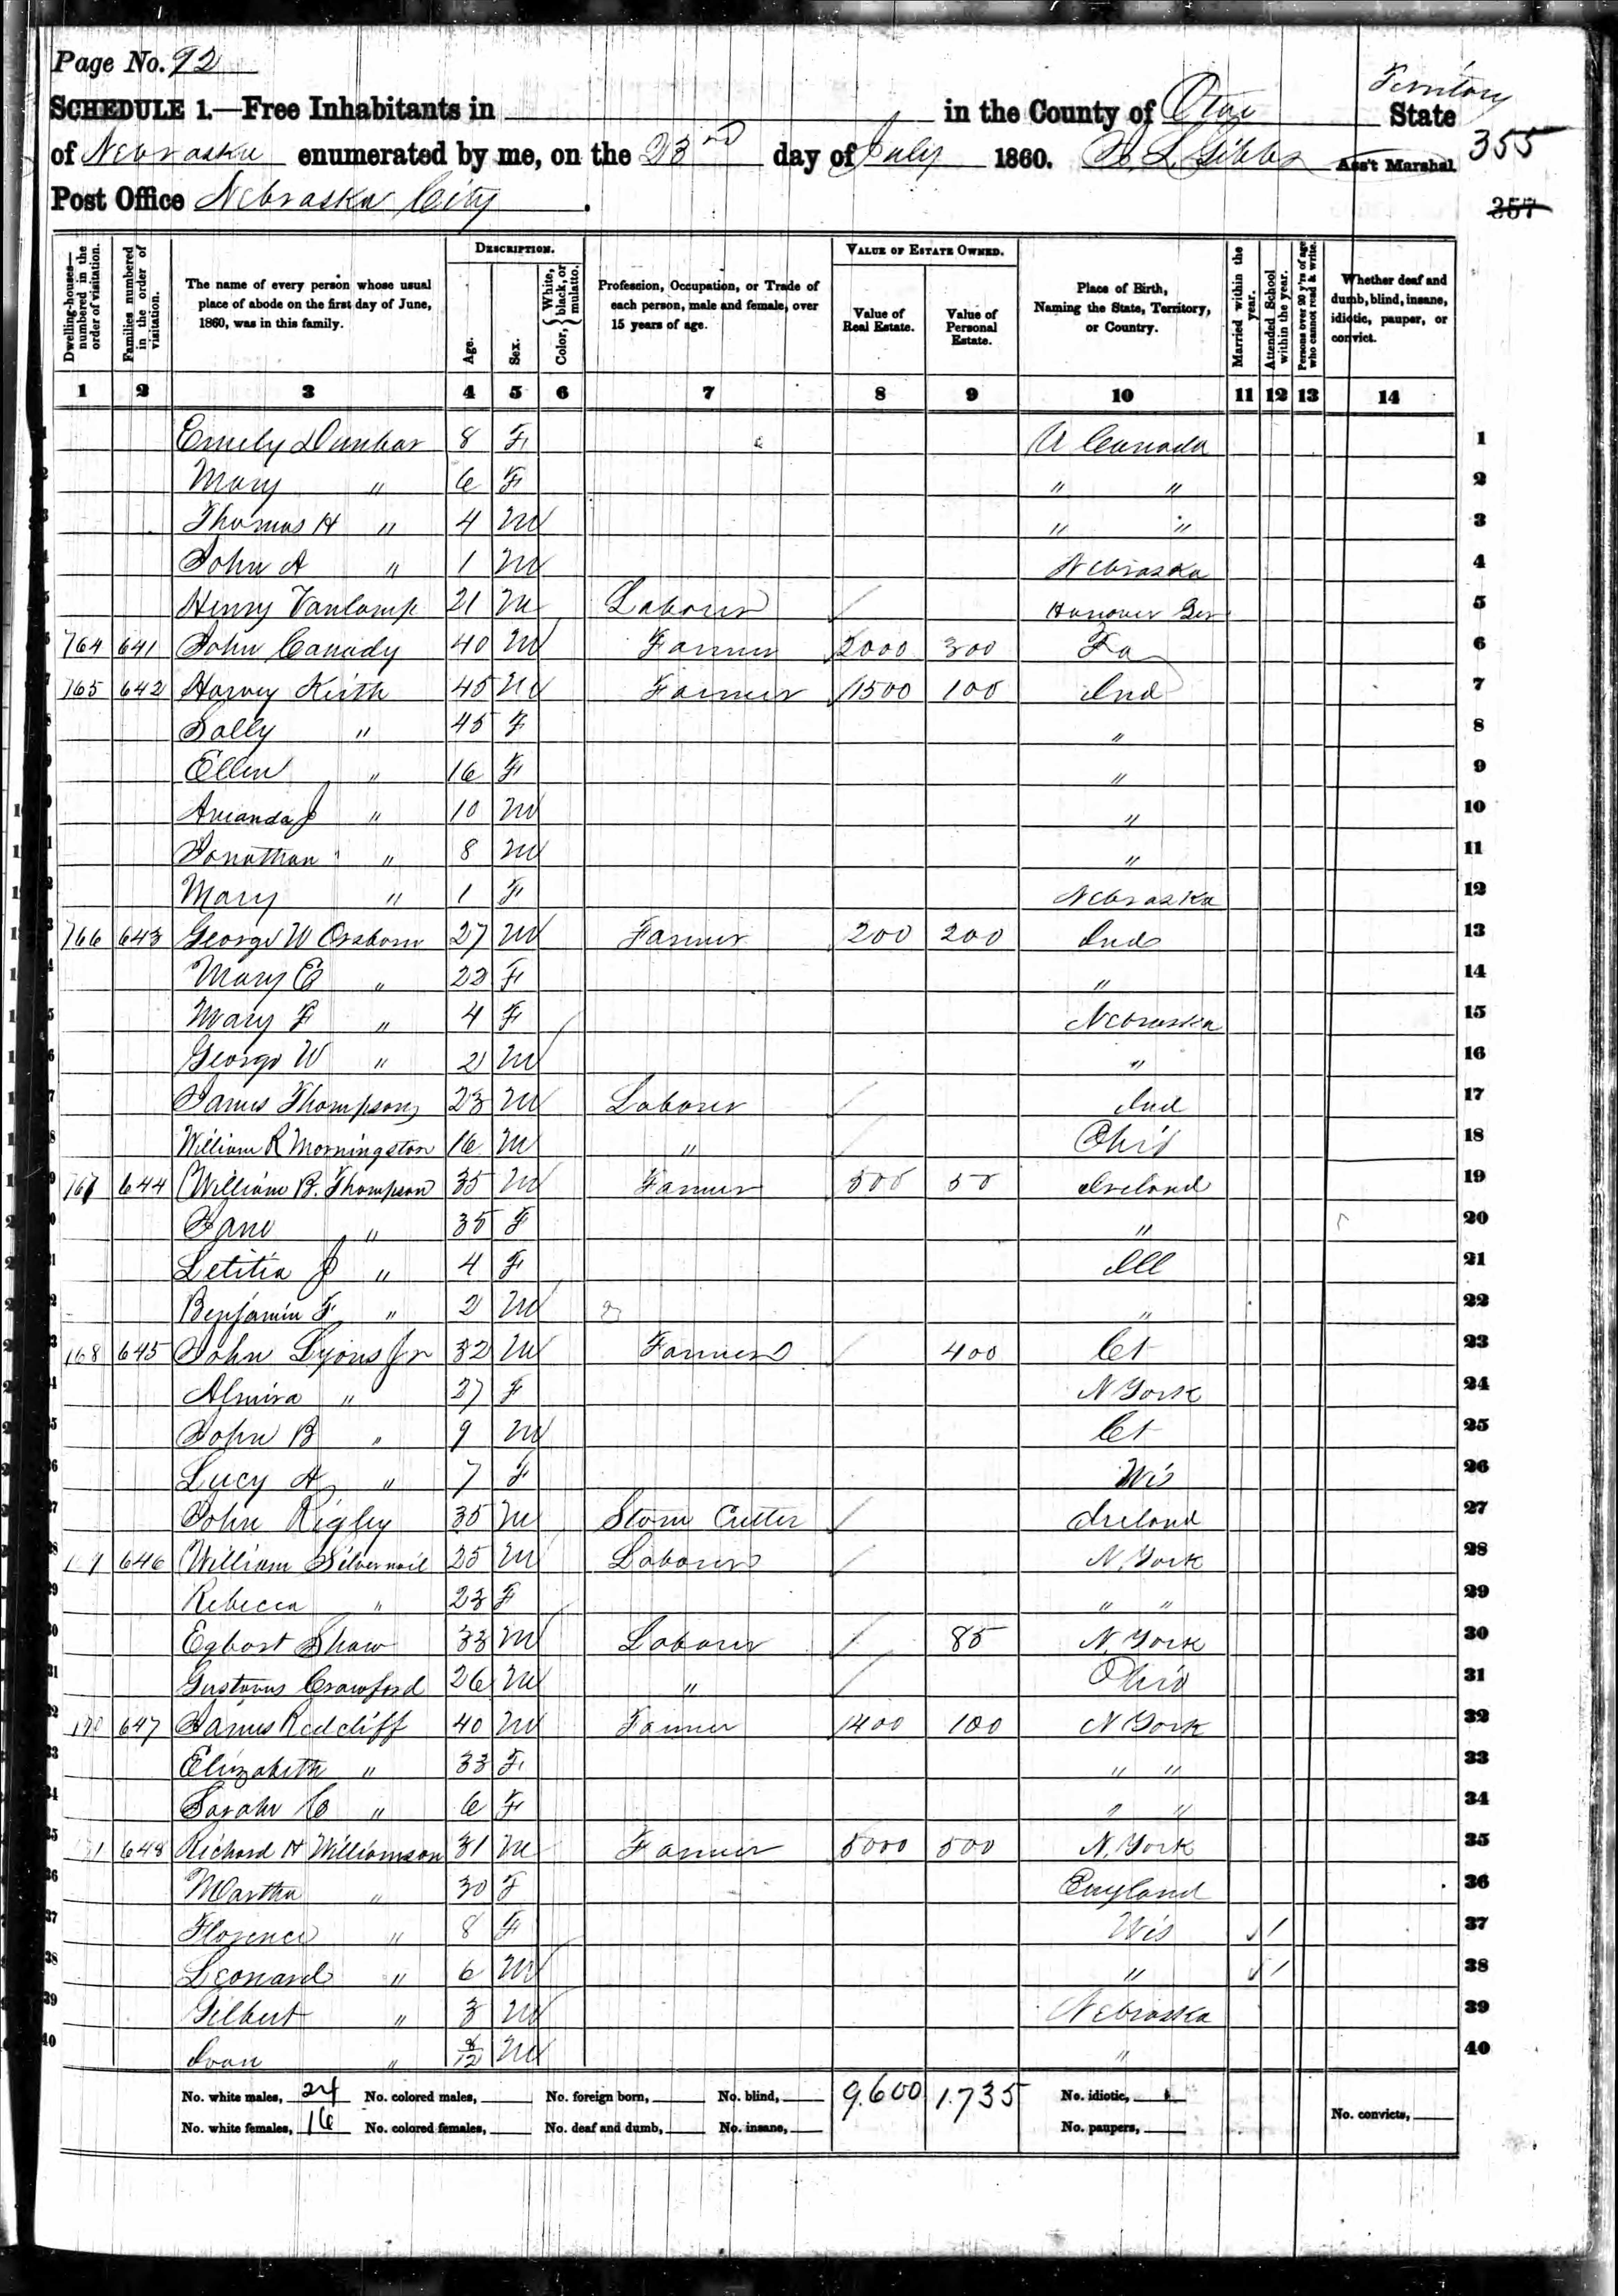 Page No. 92
SCHEDULE 1.—Free Inhabitants in in the County of Otoe Territory State
of Nebraska enumerated by me, on the 23rd day of July 1860. L Gibbs Ass't Marshal 355
Post Office Nebraska City . 357
Dwelling-houses—numbered in the order of visitation. Families numbered in the order of visitation. The name of every person whose usual place of abode on the first day of June, 1860, was in this family. Description. Age. Sex. Color, {White, black, or mulatto. Profession, Occupation, or Trade of each person, male and female, over 15 years of age. Value of Estate Owned. Value of Real Estate. Value of Personal Estate. Place of Birth, Naming the State, Territory, or Country. Married within the year. Attended School within the year. Persons over 20 y'rs of age who cannot read & write. Whether deaf and dumb, blind, insane, idiotic, pauper, or convict.
1 2 3 4 5 6 7 8 9 10 11 12 13 14
1 Emily Dunbar 8 F U Canada 1
2 Mary " 6 F " " 2
3 Thomas H " 4 M " " 3
4 John A " 1 M Nebraska 4
5 Henry Vancamp 21 M Laborer / Hanover Ger 5
6 764 641 John Canady 40 M Farmer 2000 300 6
7 765 642 Harvey Keith 45 M Farmer 1500 100 Ind 7
8 Sally " 45 F " 8
9 Ellen " 16 F " 9
10 Amanda J " 10 M " 10
11 Jonathan " 8 M " 11
12 Mary " 1 F Nebraska 12
13 766 643 George W Osborn 27 M Farmer 200 200 Ind 13
14 Mary E " 22 F " 14
15 Mary F " 4 F Nebraska 15
16 George W " 2 M " 16
17 James Thompson 23 M Laborer / Ind 17
18 William R Morningston 16 M " / Ohio 18
19 767 644 William B. Thompson 35 M Farmer 500 50 Ireland 19
20 Jane " 35 F " 20
21 Letitia J " 4 F Ill 21
22 Benjamin F " 2 M " 22
23 768 645 John Lyons Jr 32 M Farmer / 400 Ct 23
24 Almira " 27 F N York 24
25 John B " 9 M Ct 25
26 Lucy A " 7 F Wis 26
27 John Rigley 35 M Stone Cutter / Ireland 27
28 646 William Silvernail 25 M Laborer / N. York 28
29 Rebecca " 23 F " " 29
30 Egbert Shaw 33 M Laborer / 85 N. York 30
31 Gustavus Crawford 26 M " / Ohio 31
32 770 647 James Redcliff 40 M Farmer 1400 100 N York 32
33 Elizabeth " 33 F " " 33
34 Sarah C " 6 F " " 34
35 648 Richard H Williamson 31 M Farmer 5000 500 N. York 35
36 Martha " 30 F England 36
37 Florence " 8 F Wis / 37
38 Leonard " 6 M " / 38
39 Gilbert " 3 M Nebraska 39
40 Ivan " M " 40
No. white males, 24 No. colored males, No. foreign born, No. blind, 9.600 1.735 No. idiotic,
No. white females, 16 No. colored females, No. deaf and dumb, No. insane, No. paupers, No. convicts,